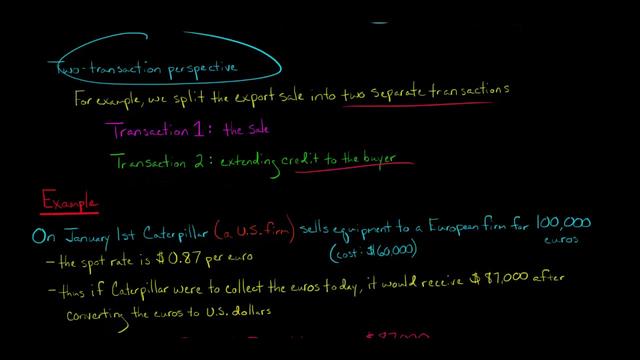 Two-transaction perspective
For example, we split the export sale into two separate transactions
Transaction 1: the sale
Transaction 2: extending credit to the buyer
Example
On January 1st Caterpillar (a U.S. firm) sells equipment to a European firm for 100,000 euros
(cost: $60,000)
- the spot rate is $0.87 per euro
- thus if Caterpillar were to collect the euros today, it would receive $87,000 after
converting the euros to U.S. dollars
$87,000